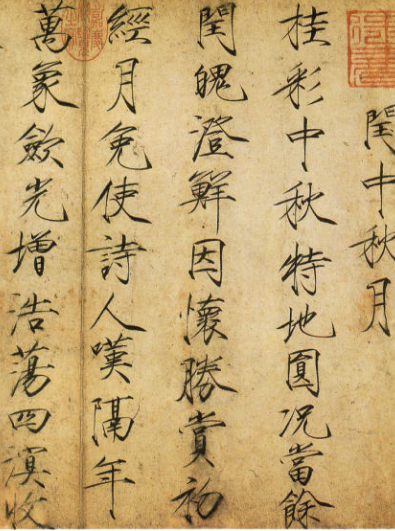 閏中秋月
桂彩中秋特地圓况當餘
閏魄澄鮮因懷勝賞初
經月免使詩人嘆隔年
萬象歛光增浩蕩四溟收